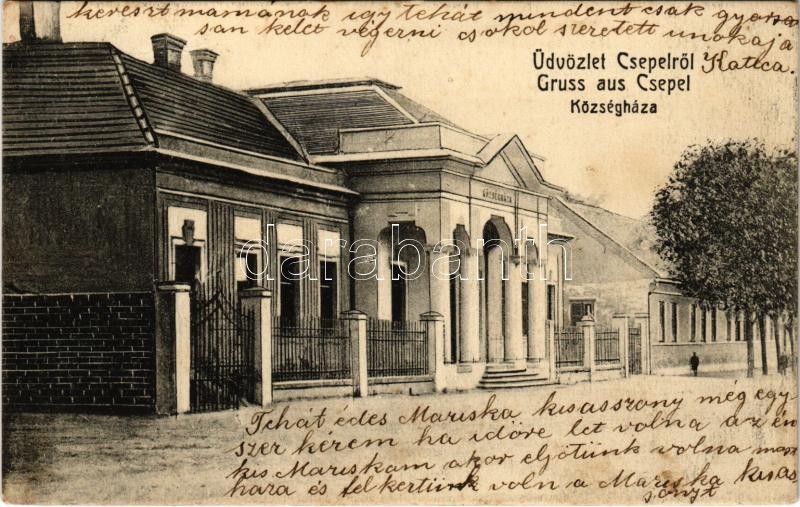 keresztmamának igy tehát mindent csak gyorsa
san kelet végezni csokol szeretett unokája
Katica.
Üdvözlet Csepelről
Gruss aus Csepel
Községháza
KÖZSÉGHÁZA
darabanth.com
Tehát édes Mariska kisasszony még egy-
szer kérem ha időve let volna az én
kis Mariskam akor eljötünk volna maszt
hara és felkertünk voln a Mariska kisas
sonyt